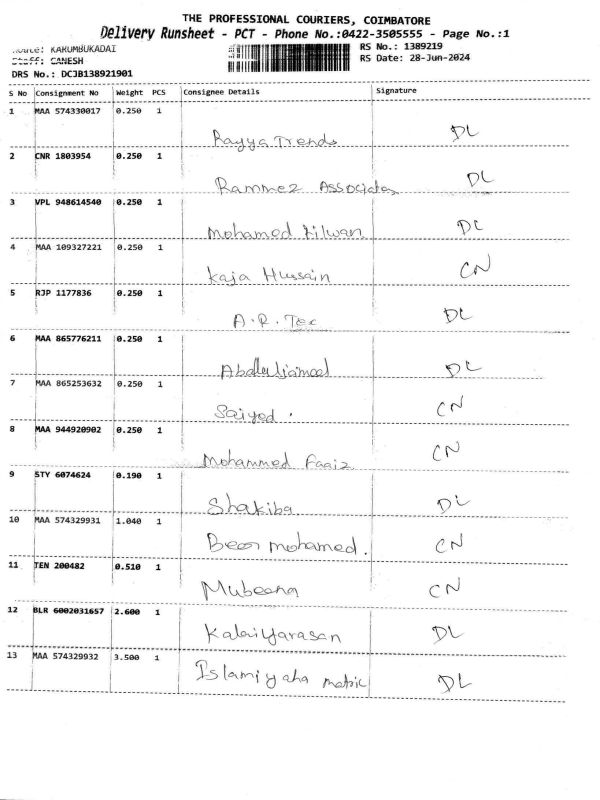 THE PROFESSIONAL COURIERS, COIMBATORE
Delivery Runsheet - PCT - Phone No.:0422-3505555 - Page No.:1
Route: KARUMBUKADAI
RS No.: 1389219
Staff: GANESH
RS Date: 28-Jun-2024
DRS No.: DCJB138921901
S No Consignment No Weight PCS Consignee Details Signature
1 MAA 574330017 0.250 1
Rayya Trends DL
2 CNR 1803954 0.250 1
Rammez Associates DL
3 VPL 948614540 0.250 1
Mohamed Rilwan DL
4 MAA 109327221 0.250 1
Kaja Hussain CN
5 RJP 1177836 0.250 1
A.R. Tex DL
6 MAA 865776211 0.250 1
DL
7 MAA 865253632 0.250 1
Saiyed. CN
8 MAA 944920902 0.250 1
Mohammed Faaiz CN
9 STY 6074624 0.190 1
Shakiba DL
10 MAA 574329931 1.040 1
Beer mohamed. CN
11 TEN 200482 0.510 1
Mubeena CN
12 BLR 6002031657 2.600 1
Kalaiyarasan DL
13 MAA 574329932 3.500 1
Islamiyaha matric DL